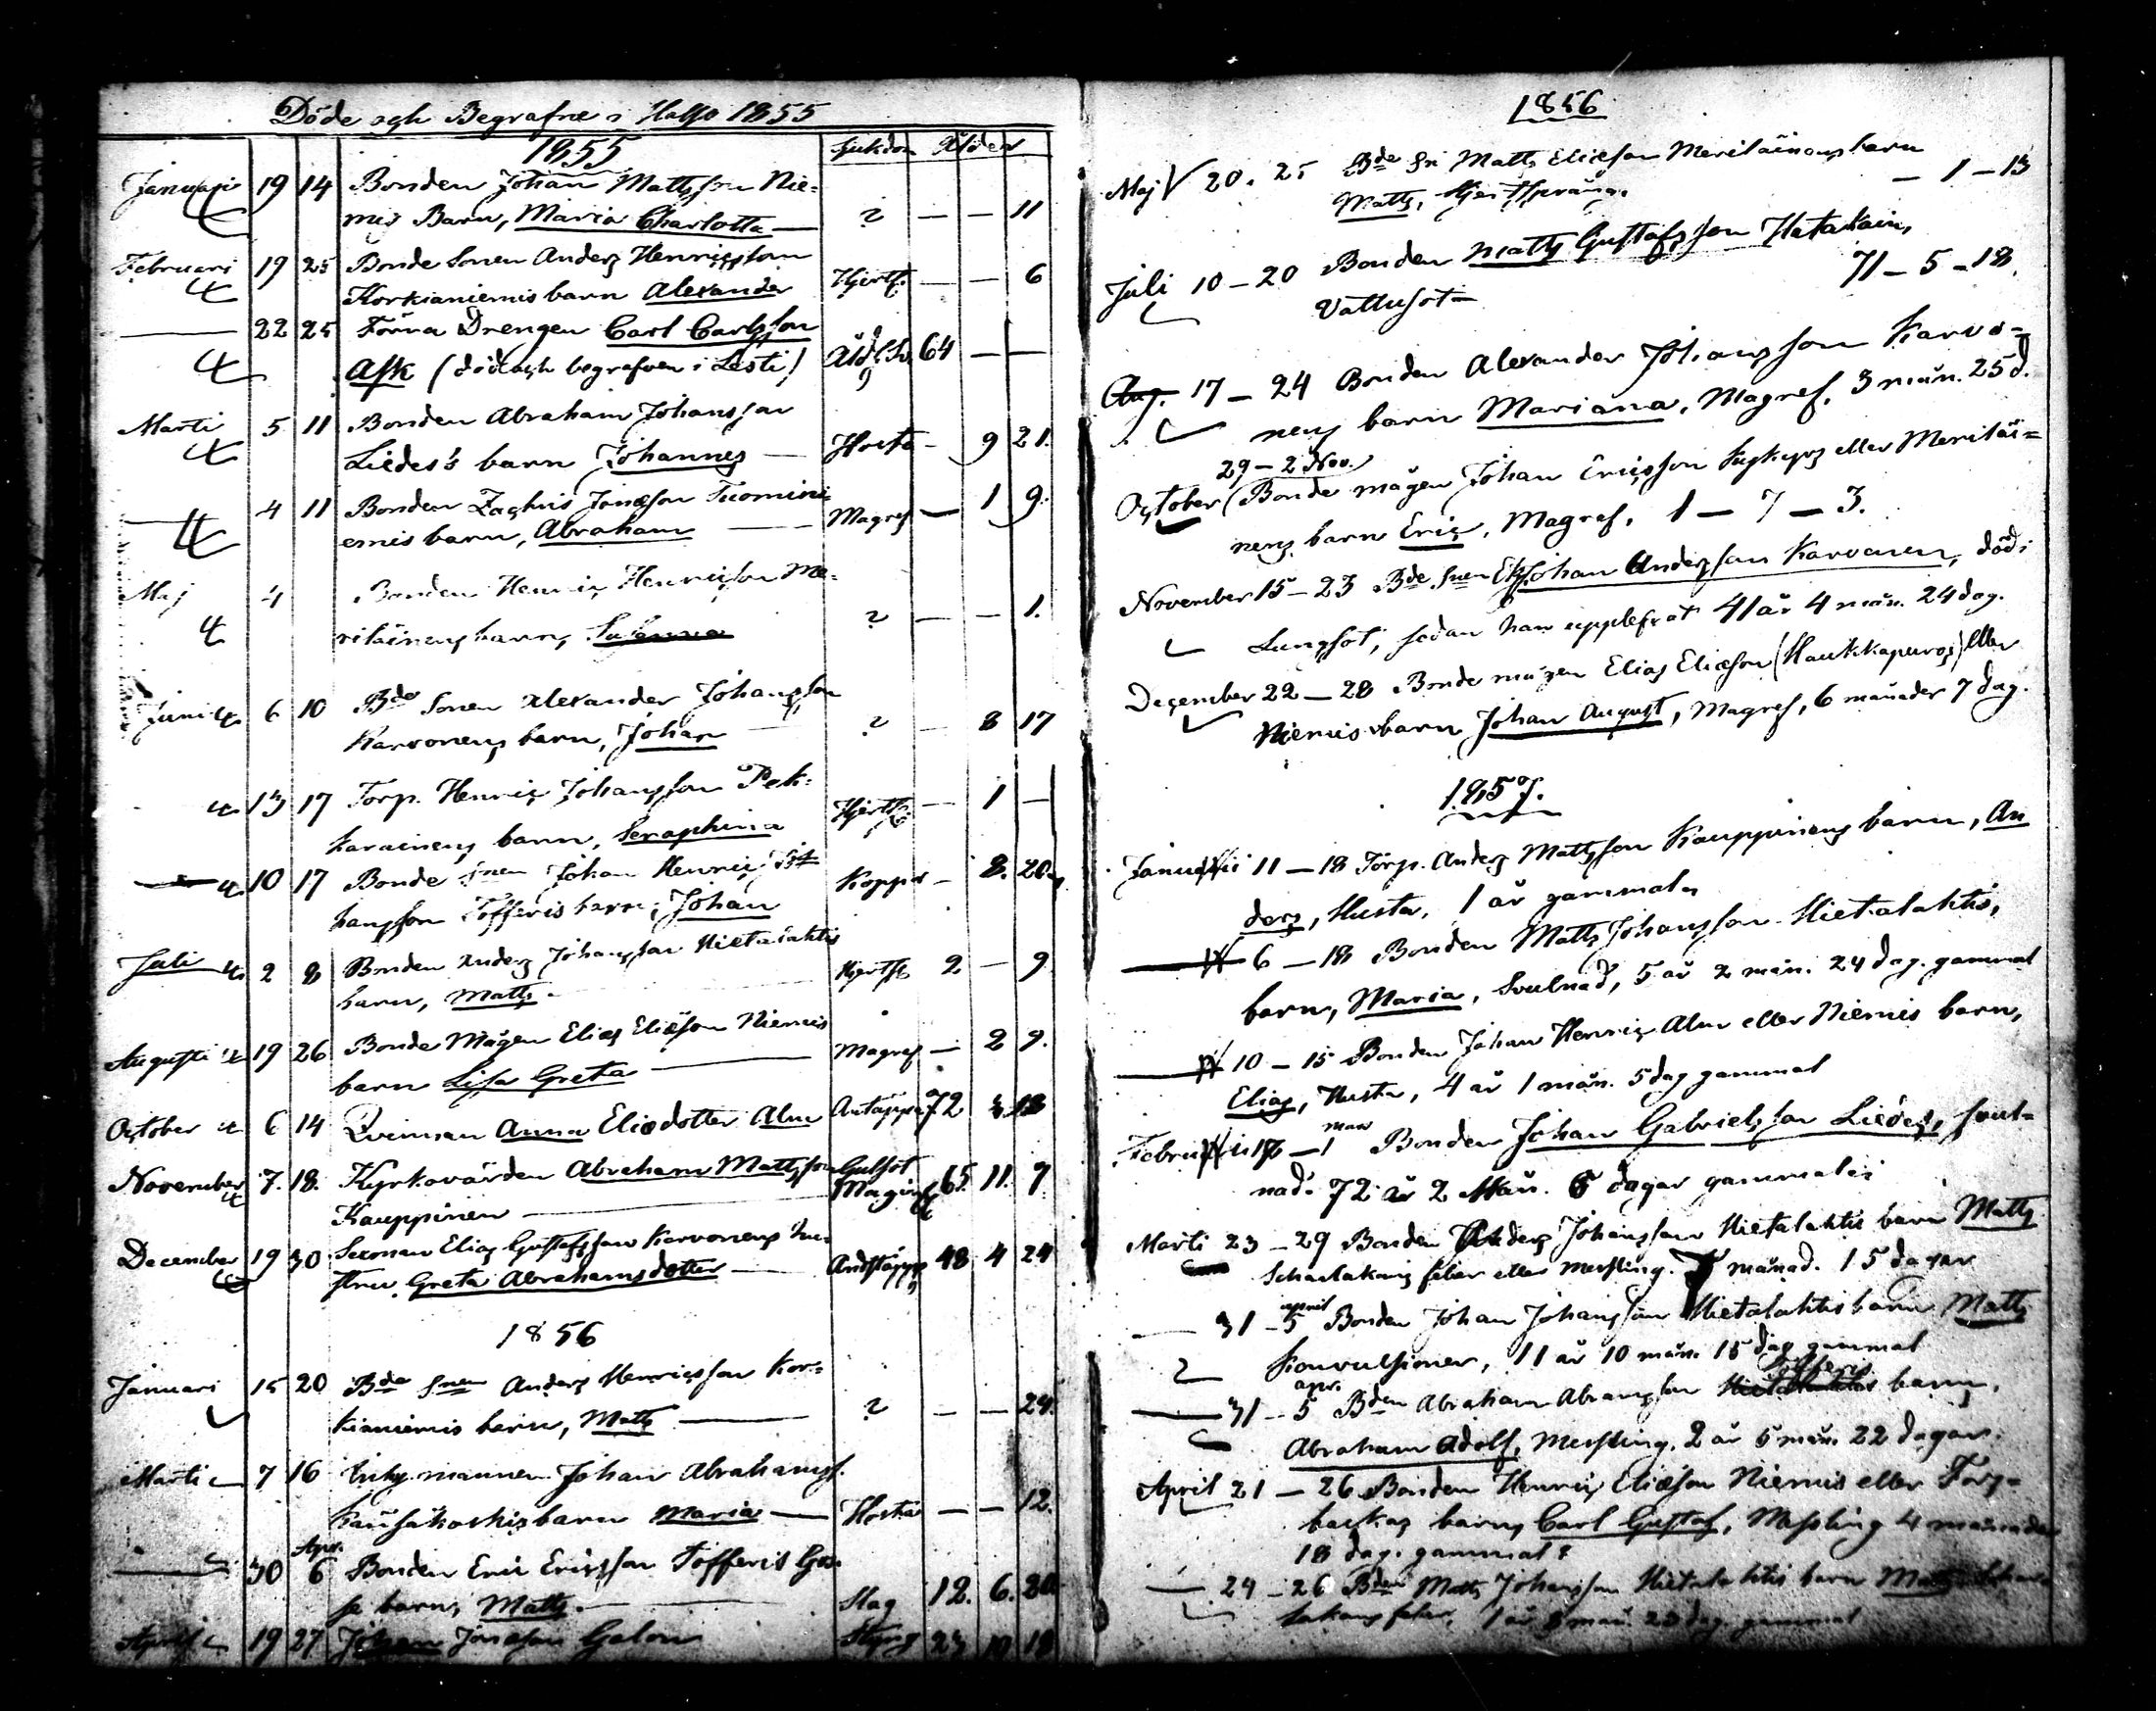 Döde och Begrafne i Halso 1855
Sjukdom Ålder
1855
Januari 19 14 Bonden Johan Mattsson Nie-
mis Barn, Maria Charlotta — ? — — 11
Februari 19 25 Bonde Sonen Anders Henricsson
Korkianiemis barn Alexander Hjertsp. — — 6
— 22 25 Förra Drengen Carl Carlsson
Ask (död och begrafven i Lesti) Åld. 64 — —
Marti 5 11 Bonden Abraham Johansson
Liedes's barn Johannes — Hosta — 9 21.
— 4 11 Bonden Zachris Jonæson Tuomini-
emis barn, Abraham — Magref — 1 9.
Maj 4 Bonden Henric Henricson Me-
riläinens barn, Susanna ? — — 1.
Juni 6 10 Bde Sonen Alexander Johansson
Karvonens barn, Johan — ? — 8 17
13 17 Torp. Henric Johansson Pek-
karainens barn, Seraphina Hjertsp. — 1 —
— 10 17 Bonde snen Johan Henric Jo-
hansson Tofferis barn, Johan Koppor — 8. 20.
Juli 2 8 Bonden Anders Johansson Hietalahtis
barn, Matts. Hjertsp 2 — 9
Augusti 19 26 Bonde Mågen Elias Eliæson Niemis
barn Lisa Greta — Magref — 2 9.
October 6 14 Qvinnan Anna Eliædotter Alm Andtäppa 72 3 18
November 7. 18. Kyrkovärden Abraham Mattsson Gulsot
Kauppinen — Maginf 65. 11. 7
December 19 30 Sexman Elias Gustafsson Karvonens hu-
stru Greta Abrahamsdotter — Andtäppa 48 4 24
1856
Januari 15 20 Bde Snen Anders Henricsson Kor-
kianiemis barn, Matts — ? — — 24.
Marti 7 16 Inhys mannen Johan Abrahamss.
barn Maria — Hosta — — 12.
Apr.
— 30 6 Bonden Eric Ericsson Tofferis Gos-
se barn, Matts. — Slag 12. 6. 20
April 19 27 Johan Jonæson Galon Styng 23 10 18
1856
Maj 20. 25 Bde Sn Matts Eliæson Meriläinens barn
Matts, Hjertsprång. — 1 — 13
Juli 10 — 20 Bonden Matts Gustafsson Hatakain,
Vattusot — 71 — 5 — 18.
Aug. 17 — 24 Bonden Alexander Johansson Karvo-
nens barn Mariana, Magref, 3 mån. 25 d.
29 — 2 Nov.
October (Bonde mågen Johan Ericsson eller Meriläi-
nens barn Eric, Magref. 1 — 7 — 3.
November 15 — 23 Bde Snen Johan Andersson Karvonen, död i
Lungsot, sedan han upplefvat 41 år 4 mån. 24 dag.
December 22 — 28 Bonde mågen Elias Eliæson (Haukkapuros) eller
Niemis barn Johan August, Magref, 6 månader 7 dag.
1857.
Januari 11 — 18 Torp. Anders Mattsson Kauppinens barn, An
ders, Husta, 1 år gammal.
— 6 — 18 Bonden Matts Johansson Hietalahtis,
barn, Maria, Svulnad, 5 år 2 mån. 24 dag. gammal
— 10 — 15 Bonden Johan Henric Alm eller Niemis barn,
Elias, Husta, 4 år 1 mån. 5 dag gammal
mar
Februari 17 — 1 Bonden Johan Gabrielsson Liedes, svul-
nad. 72 år 2 Mån. 6 dagar gammal.
Marti 23 — 29 Bonden Anders Johansson Hietalahtis barn Matts
Scharlakans feber eller messling. 7 månad. 15 dagar
april
— 31 — 5 Bonden Johan Johansson Hietalahtis barn Matts
Konvulsioner, 11 år 10 mån. 15 dag gammal
apr. Tofferis
— 31 — 5 Bden Abraham Abramsson Hietalahtis barn,
Abraham Adolf, Messling, 2 år 5 mån. 22 dagar.
April 21 — 26 Bonden Henric Eliæson Niemis eller Torp-
backas barn, Carl Gustaf, Messling 4 månader
18 dag. gammal
— 24 — 26 Bden Matts Johansson Hietalahtis barn Matts Schar-
lakans feber, 1 år 8 mån. 23 dag. gammal